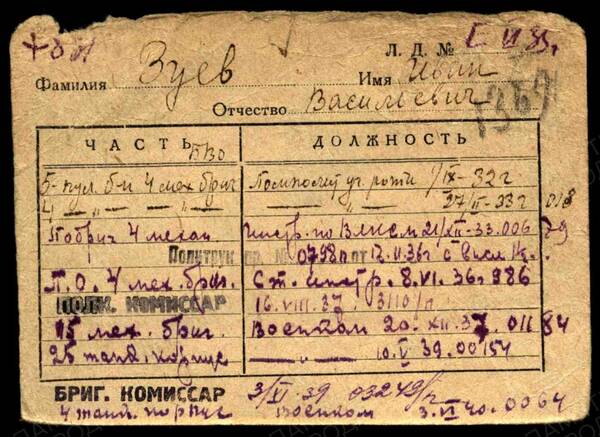 Л. Д. № Е VI 35г.
Фамилия Зуев Имя Иван
Отчество Васильевич
1367
ЧАСТЬ БВО ДОЛЖНОСТЬ
5-пул. б-н 4 мех бриг Помполит уч. роты 1/IX-32 г
4 — „ — „ — — „ — 27/II-33 г 018
Побриг 4 механ Инстр. по ВЛКСМ 21/XII-33. 00679
Политрук пр. № 0798п от 12.II.36г с высл. к.
П. О. 4 мех. бриг. Ст. инстр. 8.VI.36г 986
ПОЛК. КОМИССАР 16.VIII.37 3110/п
15 мех. бриг. Военком 20.XII.37. 01184
25 танк. корпус — „ — 10.V 39. 00154
БРИГ. КОМИССАР 3/XI.39 03249/п
4 танк. корпус Военком 3.VI 40. 0064